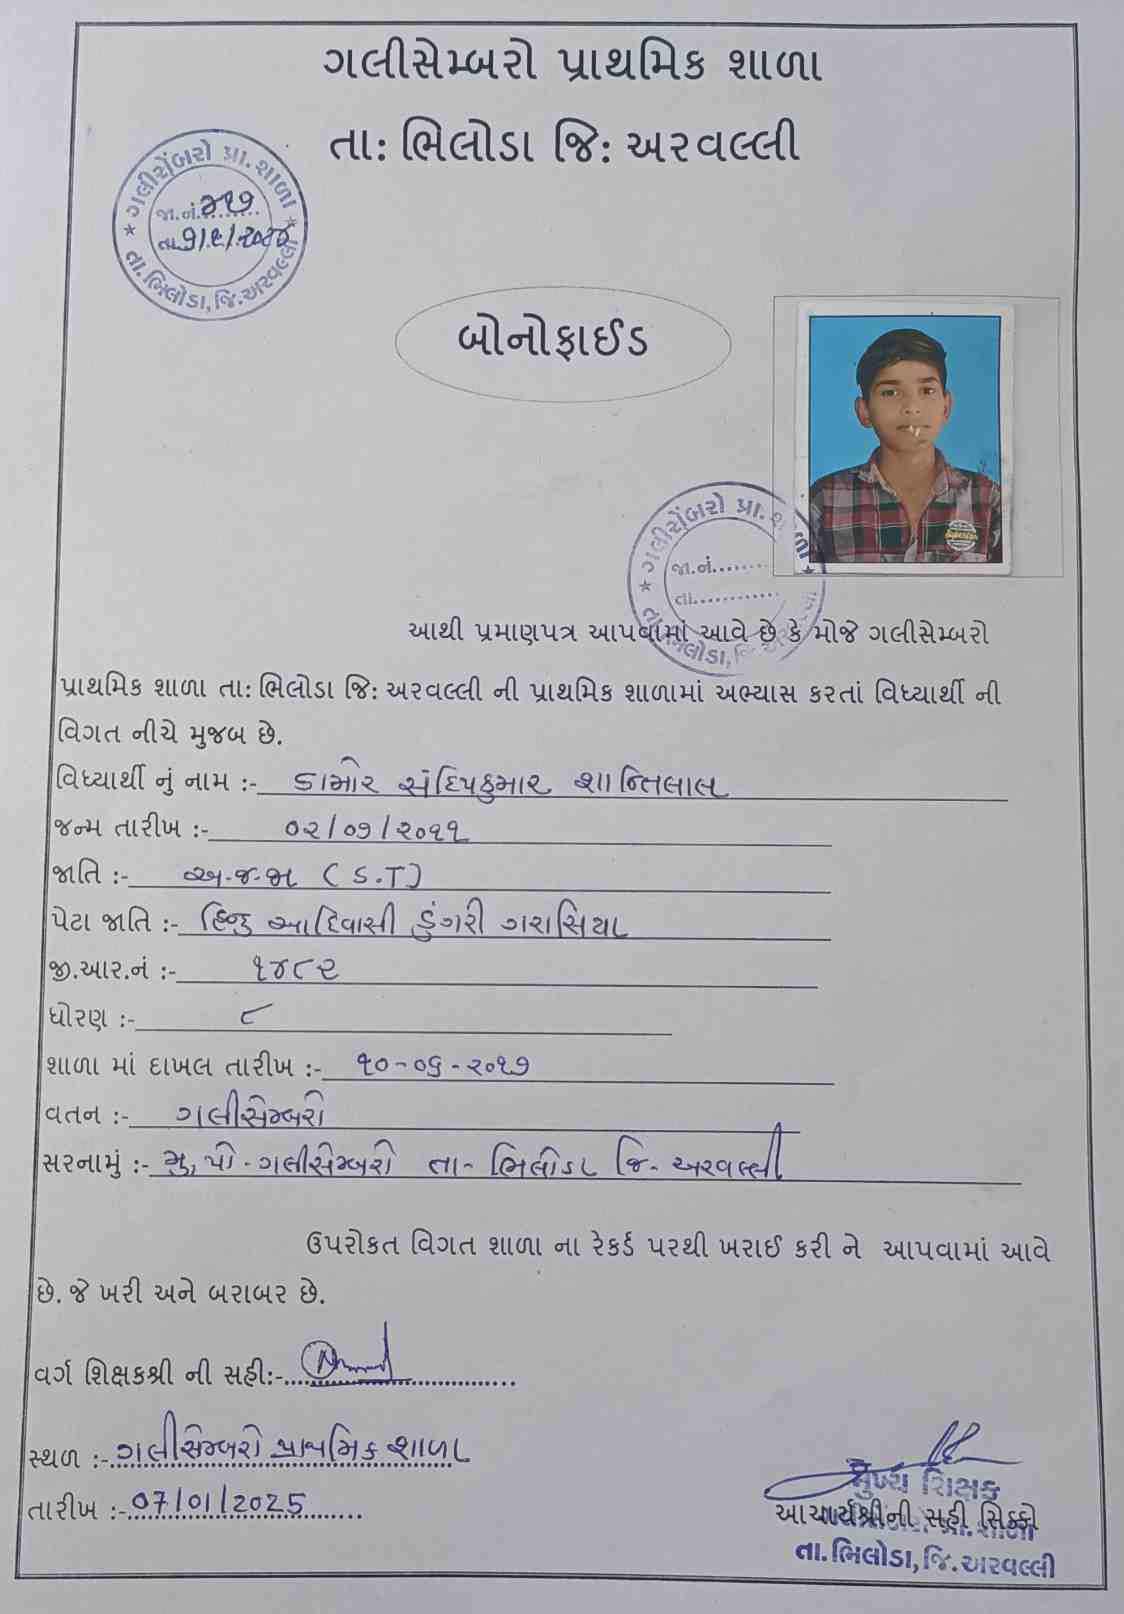 ગલીસેમ્બરો પ્રાથમિક શાળા
તા: ભિલોડા જિ: અરવલ્લી
ગલીસેંબરો પ્રા. શાળા
જા.નં. ૨૧૭
તા.
તા. ભિલોડા, જિ. અરવલ્લી
બોનોફાઈડ
ગલીસેંબરો પ્રા. શાળા
જા.નં.......
તા...........
આથી પ્રમાણપત્ર આપવામાં આવે છે કે મોજે ગલીસેમ્બરો
પ્રાથમિક શાળા તા: ભિલોડા જિ: અરવલ્લી ની પ્રાથમિક શાળામાં અભ્યાસ કરતાં વિધ્યાર્થી ની
વિગત નીચે મુજબ છે.
વિધ્યાર્થી નું નામ :- ડામોર સંદિપકુમાર શાન્તિલાલ
જન્મ તારીખ :- ૦૨/૦૭/૨૦૧૧
જાતિ :- અ.જ.જા (S.T)
પેટા જાતિ :- હિન્દુ આદિવાસી ડુંગરી ગરાસિયા
જી.આર.નં :- ૧૪૮૨
ધોરણ :- ૮
શાળા માં દાખલ તારીખ :- ૧૦-૦૬-૨૦૧૭
વતન :- ગલીસેમ્બરો
સરનામું :- મુ,પો-ગલીસેમ્બરો તા- ભિલોડા જિ- અરવલ્લી
ઉપરોકત વિગત શાળા ના રેકર્ડ પરથી ખરાઈ કરી ને આપવામાં આવે
છે. જે ખરી અને બરાબર છે.
વર્ગ શિક્ષકશ્રી ની સહી:-
સ્થળ :- ગલીસેમ્બરો પ્રાથમિક શાળા
તારીખ :- 07/01/2025
મુખ્ય શિક્ષક
આચાર્યશ્રીની સહી સિક્કો
તા. ભિલોડા, જિ. અરવલ્લી